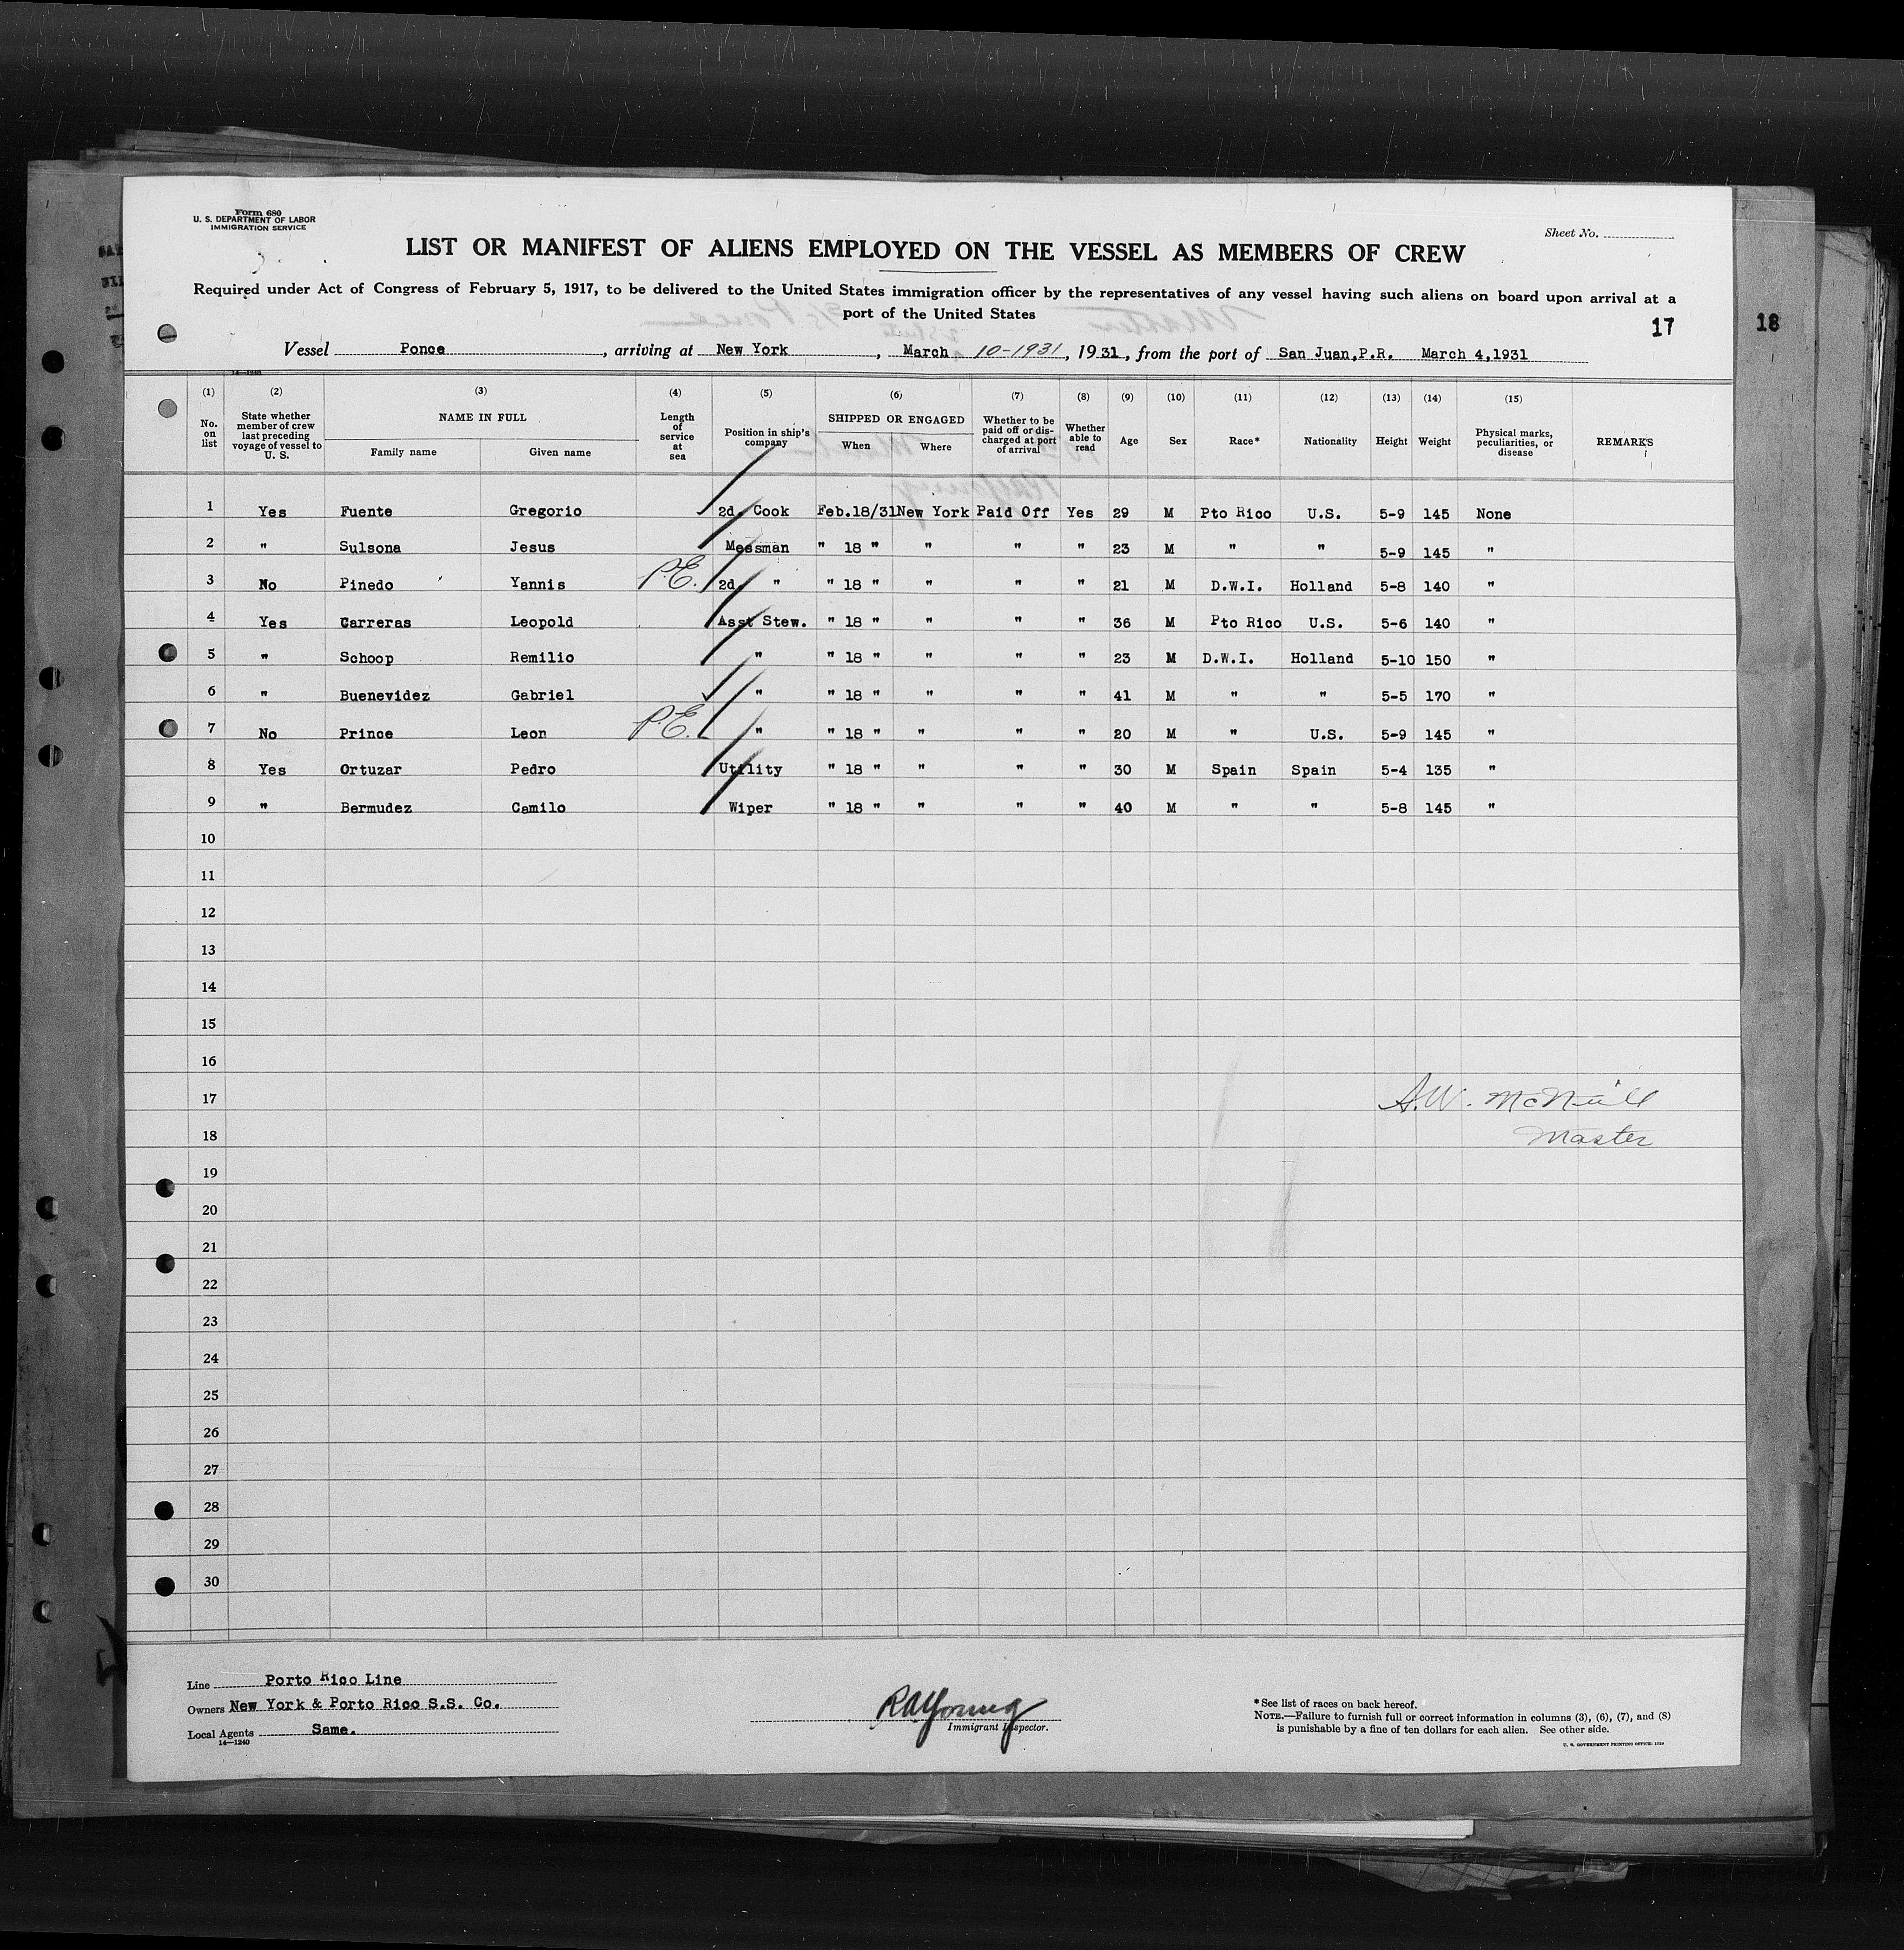 Form 680
U. S. DEPARTMENT OF LABOR
IMMIGRATION SERVICE
Sheet No.
LIST OR MANIFEST OF ALIENS EMPLOYED ON THE VESSEL AS MEMBERS OF CREW
Required under Act of Congress of February 5, 1917, to be delivered to the United States immigration officer by the representatives of any vessel having such aliens on board upon arrival at a
port of the United States
17
18
Vessel Ponce, arriving at New York, March 10-1931, 1931, from the port of San Juan,P.R. March 4,1931
14—1240
(1) (2) (3) (4) (5) (6) (7) (8) (9) (10) (11) (12) (13) (14) (15)
No. on list State whether member of crew last preceding voyage of vessel to U. S. NAME IN FULL Family name Given name Length of service at sea Position in ship's company SHIPPED OR ENGAGED When Where Whether to be paid off or discharged at port of arrival Whether able to read Age Sex Race* Nationality Height Weight Physical marks, peculiarities, or disease REMARKS
1 Yes Fuente Gregorio 2d. Cook Feb.18/31 New York Paid Off Yes 29 M Pto Rico U.S. 5-9 145 None
2 " Sulsona Jesus Messman " 18 " " " " 23 M " " 5-9 145 "
3 No Pinedo Yannis P.E. 2d " " 18 " " " " 21 M D.W.I. Holland 5-8 140 "
4 Yes Carreras Leopold Asst Stew. " 18 " " " " 36 M Pto Rico U.S. 5-6 140 "
5 " Schoop Remilio " " 18 " " " " 23 M D.W.I. Holland 5-10 150 "
6 " Buenevidez Gabriel " " 18 " " " " 41 M " " 5-5 170 "
7 No Prince Leon P.E. " " 18 " " " " 20 M " U.S. 5-9 145 "
8 Yes Ortuzar Pedro Utility " 18 " " " " 30 M Spain Spain 5-4 135 "
9 " Bermudez Camilo Wiper " 18 " " " " 40 M " " 5-8 145 "
10
11
12
13
14
15
16
17 A.W. McNeill
18 Master
19
20
21
22
23
24
25
26
27
28
29
30
Line Porto Rico Line
Owners New York & Porto Rico S.S. Co.
Local Agents Same.
14—1240
RAYoung
Immigrant Inspector.
*See list of races on back hereof.
NOTE.—Failure to furnish full or correct information in columns (3), (6), (7), and (8)
is punishable by a fine of ten dollars for each alien. See other side.